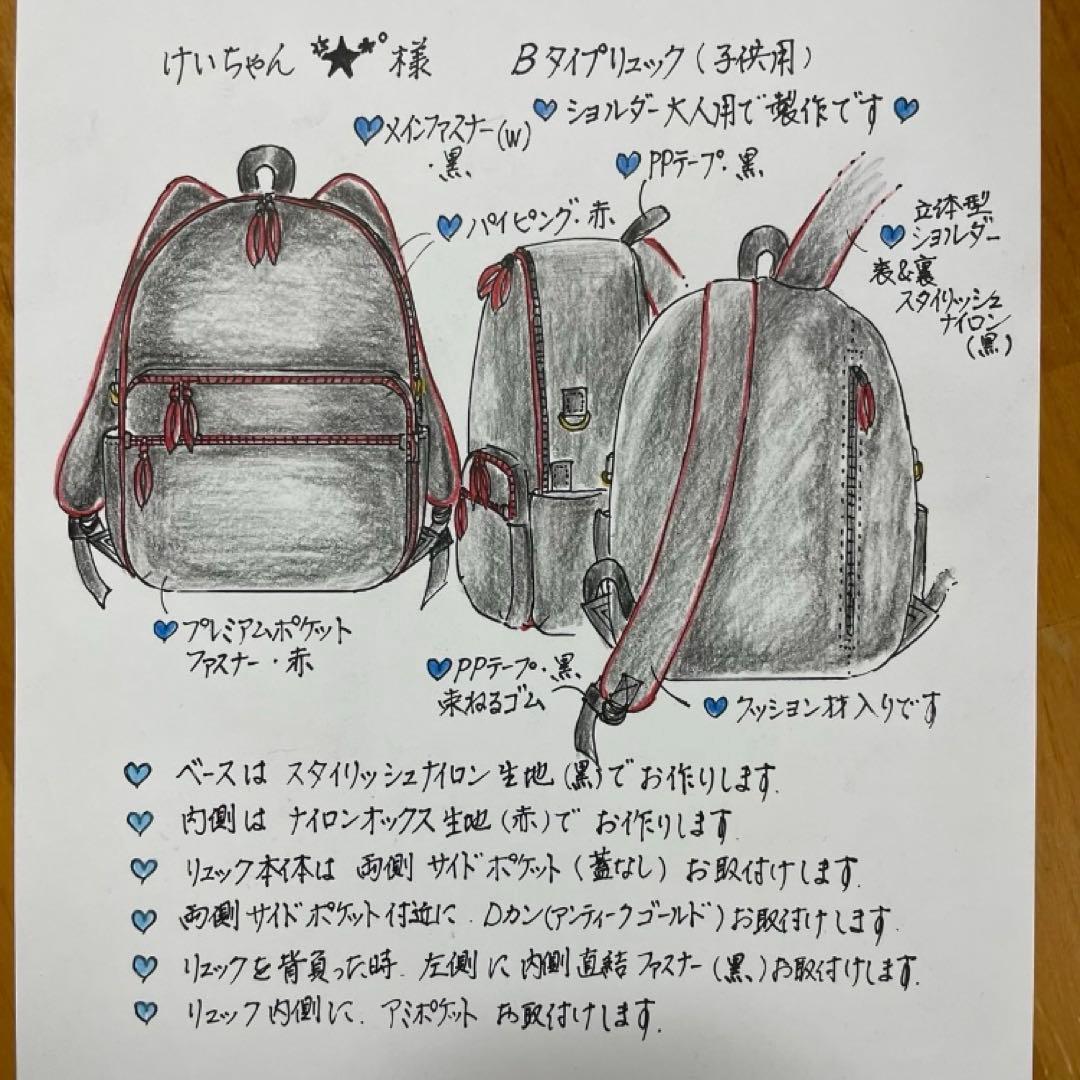 けいちゃん★様
Bタイプリュック(子供用)
ショルダー大人用で製作です
メインファスナー(W)
・黒
PPテープ・黒
パイピング・赤
立体型
ショルダー
表&裏
スタイリッシュ
ナイロン
(黒)
プレミアムポケット
ファスナー・赤
PPテープ・黒
束ねるゴム
クッション材入りです
ベースは スタイリッシュナイロン生地(黒)でお作りします.
内側は ナイロンオックス生地(赤)で お作りします.
リュック本体は 両側 サイドポケット(蓋なし) お取付けします.
両側サイドポケット付近に. Dカン(アンティークゴールド)お取付けします.
リュックを背負った時. 左側に内側直結ファスナー(黒)お取付けします.
リュック内側に. アミポケット お取付けします.